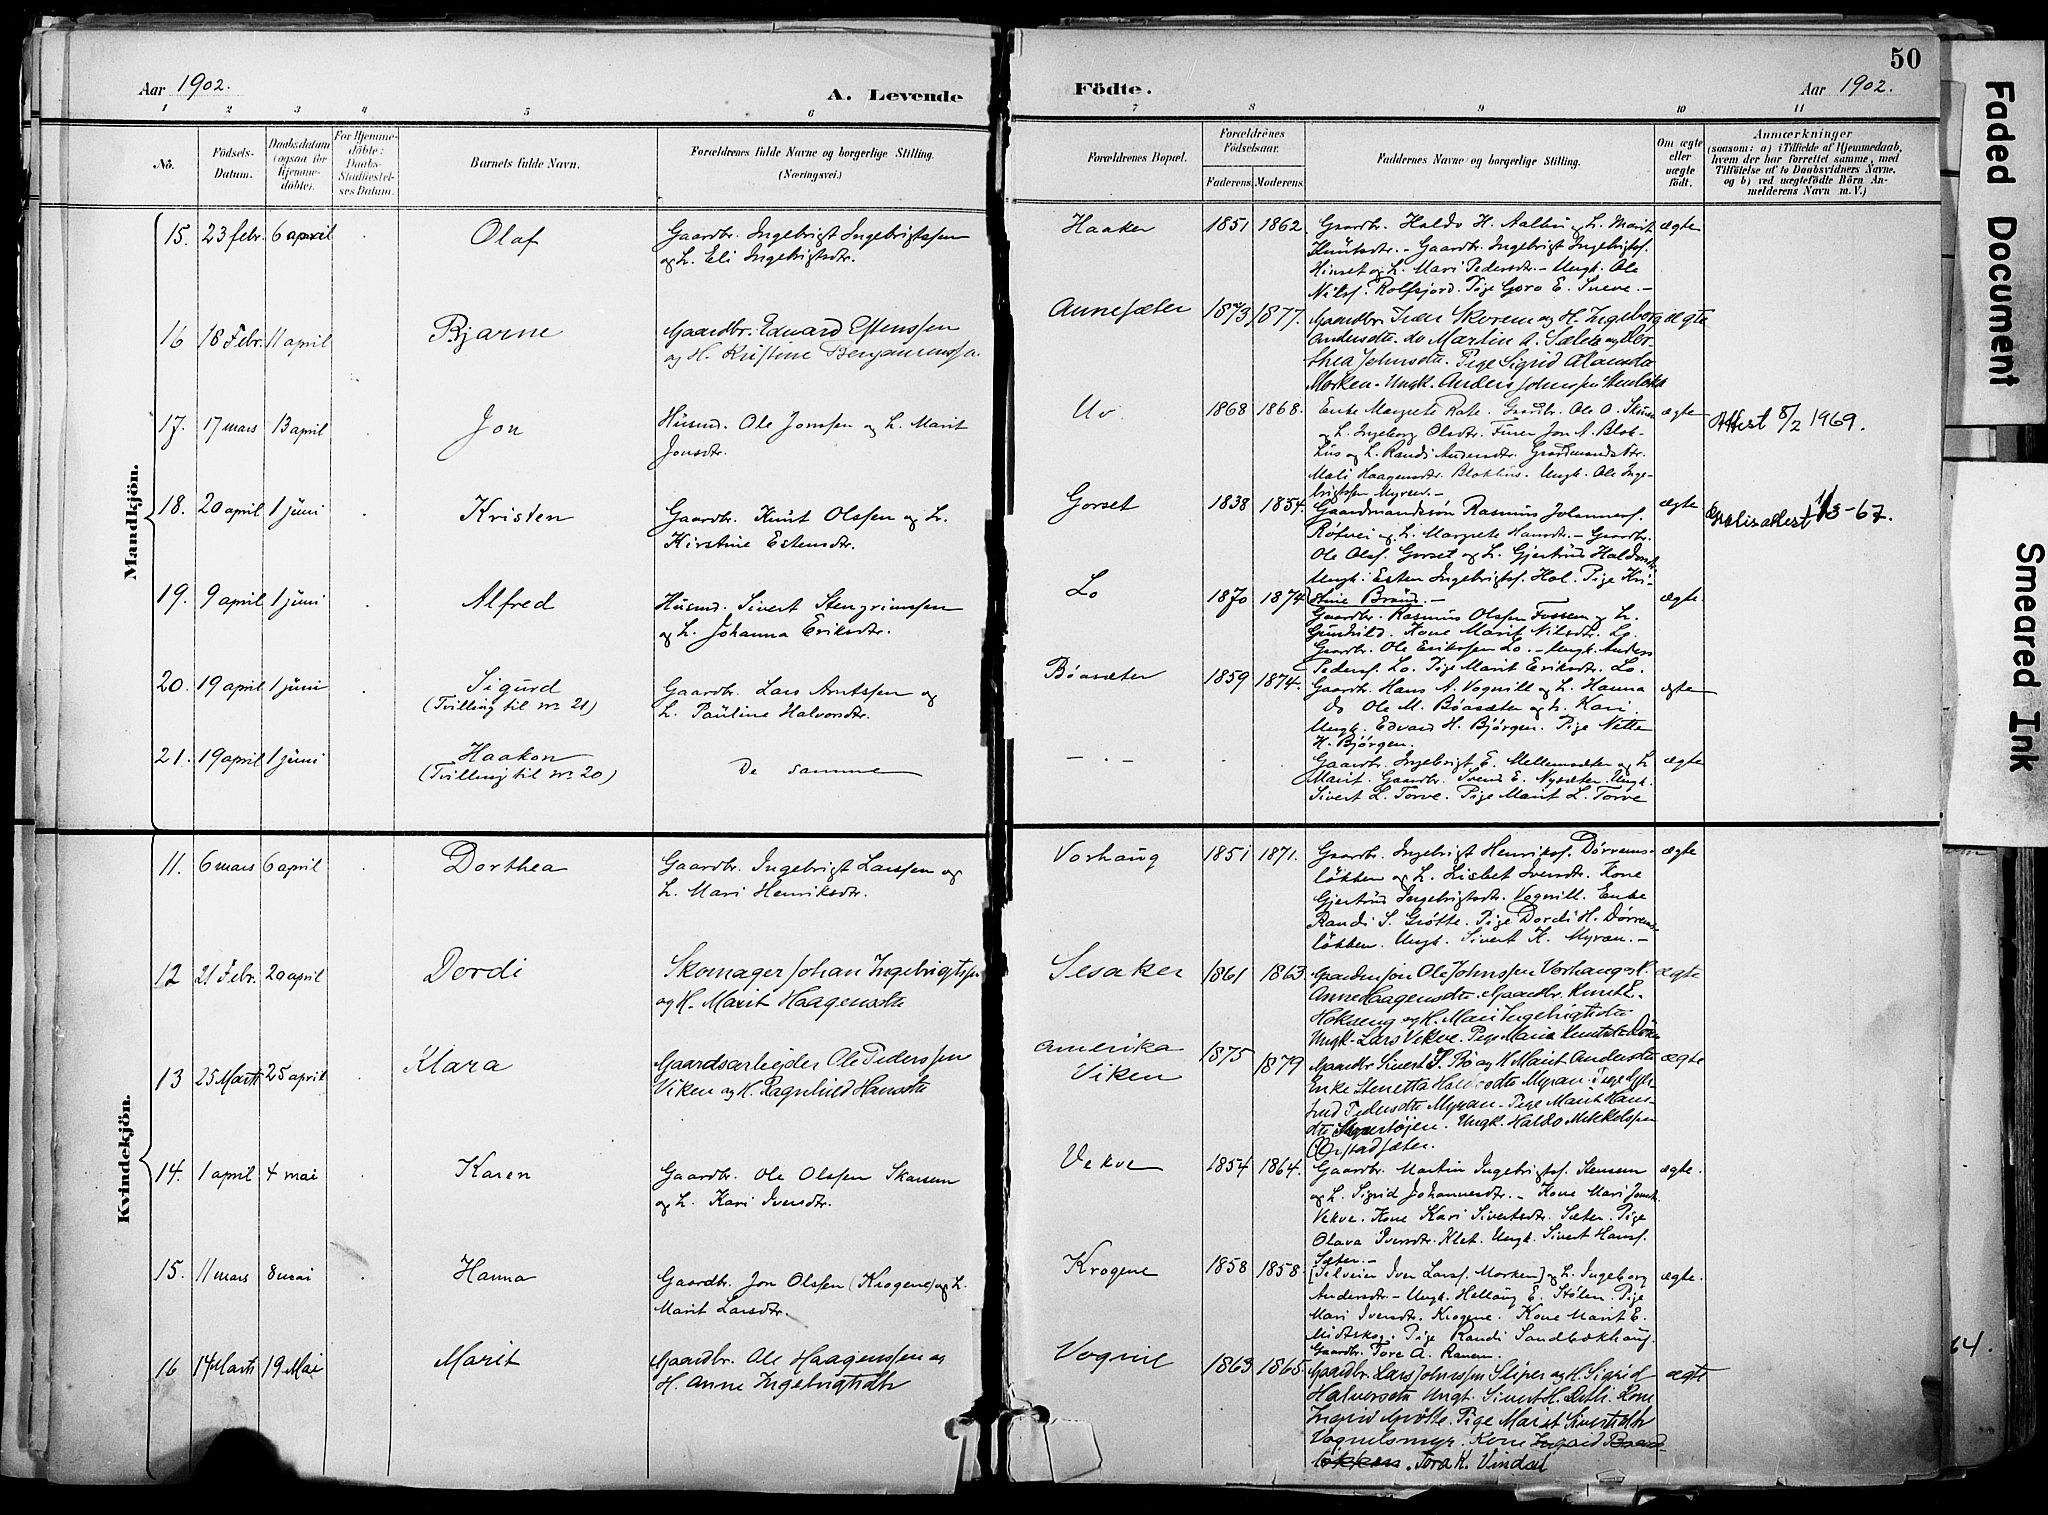 50
Aar 1902.
A. Levende
Födte.
Aar 1902.
1 2 3 4 5 6 7 8 9 10 11
No.
Födsels-
Datum.
Daabsdatum
(ogsaa for
Hjemme-
döbte).
For Hjemme-
döbte:
Daabs-
Stadfæstel-
ses Datum.
Barnets fulde Navn.
Forældrenes fulde Navne og borgerlige Stilling.
(Næringsvei.)
Forældrenes Bopæl.
Forældrenes
Födselsaar.
Faderens Moderens
Faddernes Navne og borgerlig Stilling.
Om ægte
eller
uægte
født.
Anmærkninger
(saasom: a) i Tilfælde af Hjemmedaab,
hvem der har forrettet samme, med
Tilføielse af to Daabsvidners Navne,
og b) ved uægtefödte Börn An-
melderens Navn m. V.)
Mandkjön.
15. 23 febr. 6 april
Olaf
Gaardbr. Ingebrigt Ingebrigtssen
og L. Eli Ingebrigtsdtr.
Haaker
1851 1862.
Gaardbr. Haldo H. Aalbu og L. Marit
Knutsdtr. - Gaardbr. Ingebrigt Ingebrigtsf.
Hinset og L. Mari Pedersdtr. - Ungk. Ole
Nilsf. Rolfsjord. Pige Guro E. Sneve. -
ægte
16 18 Febr. 11 april
Bjarne
Gaardbr. Eduard Estenssen
og H. Kristine Benjaminss
Annesæter
1873 1877.
Gaardbr. Ivar Skorem og H. Ingeborg
Andersdtr. do Martin A. Sæle og Dor-
thea Johnsdtr. Pige Sigrid
Morken - Ungk. Anders Johnssen
ægte
17. 17 mars 13 april
Jon
Husmd. Ole Jonssen og L. Marit
Jonsdtr.
Uv.
1868 1868.
Enke Margrete Rate. Gaardbr. Ole O.
og L. Ingeborg Olsdtr. Furer Jon A. Blok-
hus og L. Randi Andersdtr. Gaardmandsdtr.
Mali Haagensdtr. Blokhus. Ungk. Ole Inge-
brigtssen Myren. -
ægte
Attest 8/2 1969.
18. 20 april 1 juni
Kristen
Gaardbr. Knut Olssen og L.
Kirstine Estensdtr.
Gorset
1838 1854.
Gaardmandssøn Rasmus Johannesf.
Røtvei og L. Margrete Hansdtr. - Gaardbr.
Ole Olsf. Gorset og L. Gjertrud Haldosdtr.
Ungk. Esten Ingebrigtsf. Hol. Pige Kri-
stine Brund. -
ægte
Gratisattest 1/3-67.
19. 9 april 1 juni
Alfred
Husmd. Sivert Stengrimssen
og L. Johanna Eriksdtr.
Lo
1870 1874.
Gaardbr. Rasmus Olssen Fossem og L.
Gunhild. Kone Marit Nilsdtr. Lo.
Gaardbr. Ole Erikssen Lo. - Ungk. Anders
Pedersf. Lo. Pige Marit Eriksdtr. Lo.
ægte.
20. 19 april 1 juni
Sigurd
(Tvilling til nr 21)
Gaardbr. Lars Arntssen og
L. Pauline Halvorsdtr.
Bøasæter
1859 1874.
Gaardbr. Hans A. Vognill og L. Hanna
do Ole M. Bøasæter og L. Kari.
Ungk. Edvard H. Bjørgen. Pige Nette
H. Bjørgen.
ægte
21. 19 april 1 juni
Haakon
(Tvilling til nr 20)
De samme
- . -
Gaardbr. Ingebrigt E. Mellemsæter og L
Marit. Gaardbr. Svend E. Nysæter. Ungk.
Sivert L. Torve. Pige Marit L. Torve
ægte
Kvindekjön.
11. 6 mars 6 april
Dorthea
Gaardbr. Ingebrigt Larssen og
L. Mari Henriksdtr.
Vorhaug
1851 1871.
Gaardbr. Ingebrigt Henriksf. Dørrems-
løkken og L. Lisbet Svendsdtr. Kone
Gjertrud Ingebrigtsdtr. Vognill. Enke
Randi S. Grøtte. Pige Dordi H. Dørrems-
løkken. Ungk. Sivert K. Myran. -
ægte
12 21 Febr. 20 april
Dordi
Skomager Johan Ingebrigtssen
og H. Marit Haagensdtr
Sesaker
1861 1863.
Gaardmsøn Ole Johnssen Vorhaug og H.
Anne Haagensdtr. Gaardbr. Knut E.
Hokseng og H. Mari Ingebrigtsdtr
Ungk. Lars Vekve. Pige Maria Knutsdtr
ægte
13 25 Marts 25 april
Klara
Gaardsarbejder Ole Pederssen
Viken og H. Ragnhild Hansdtr
Amerika
Viken
1875 1879
Gaardbr Sivert S. Bø og H Marit Andersdtr
Enke Stenetta Haldosdtr Myran. Pige
Pedersdtr Myran - Pige Marit Hans-
dtr. Ungk. Haldo Mikkelssen
Ørstadsæter.
ægte
14. 1 april 4 mai
Karen
Gaardbr. Ole Olssen Skarsem
og L. Kari Iversdtr.
Vekve
1854 1864.
Gaardbr. Martin Ingebrigtsf. Stensem
og L. Sigrid Johannesdtr. - Kone Mari Jonsdtr.
Vekve. Kone Kari Sivertsdtr. Sæter. Pige
Olava Iversdtr. Klet. Ungk. Sivert Hansf.
Sæter. -
ægte.
15. 11 mars 8 mai
Hanna
Gaardbr. Jon Olssen (Krogene) og L.
Marit Larsdtr.
Krogene
1858 1858.
[Selveier Iver Larsf. Morken] og L. Ingeborg
Andersdtr. - Ungk. Hellaug E. Stølen. Pige
Mari Iversdtr. Krogene. Kone Marit E.
Midtskog. Pige Randi Sandbækhaug.
Gaardbr. Tore A. Ranem.
ægte.
16 14 Marts 19 Mai
Marit
Gaardbr. Ole Haagenssen og
H. Anne Ingebrigtsdtr
Vognil
1863 1865.
Gaardbr. Lars Johnssen Sliper og H. Sigrid
Halvorsdtr Ungk. Sivert H. Kone
Ingrid Grøtte. Pige Marit Sivertsdtr
Vognilsmyr. Kone Ingrid
Tora K. Vindal
ægte
Faded Document
Smeared Ink
64.